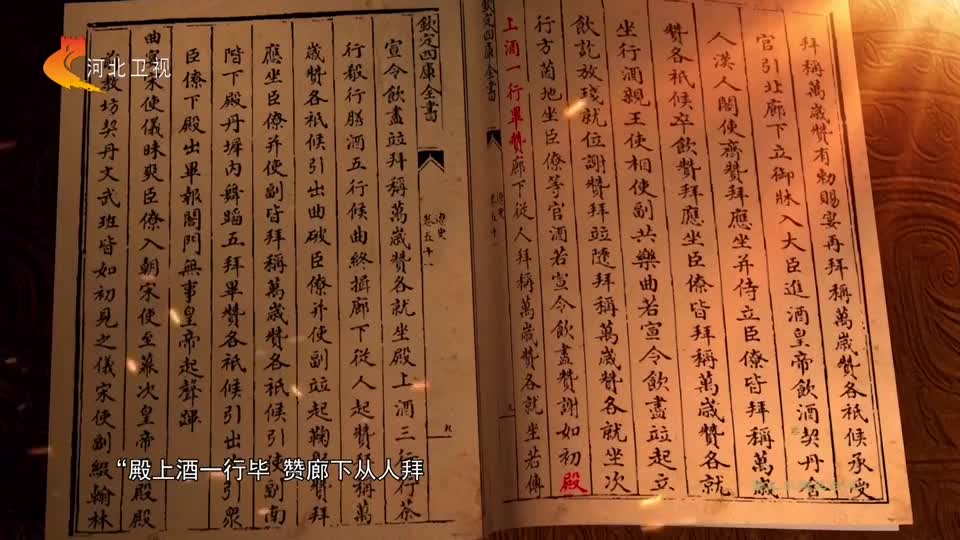 河北卫视
拜稱萬歲贊有勅賜宴再拜稱萬歲贊各祗候承受
官引北廊下立御牀入大臣進酒皇帝飲酒契丹舍
人漢人閤使齊贊拜應坐并侍立臣僚皆拜稱萬歲
贊各祗候卒飲贊拜應坐臣僚皆拜稱萬歲贊各就
坐行酒親王使相使副共樂曲若宣令飲盡竝起立
飲訖放琖就位謝贊拜竝隨拜稱萬歲贊各就坐次
行方茵地坐臣僚等官酒若宣令飲盡贊謝如初殿
上酒一行畢贊廊下從人拜稱萬歲贊各就坐若傳
欽定四庫全書
卷五十一
欽定四庫全書
遼史
卷五十一
宣令飲盡竝拜稱萬歲贊各就坐殿上酒三行行茶
行殽行膳酒五行候曲終揖廊下從人起贊拜稱萬
歲贊各祗候引出曲破臣僚并使副竝起鞠贊拜
應坐臣僚并使副皆拜稱萬歲贊各祗候引使副南
階下殿丹墀內舞蹈五拜畢贊各祗候引出引眾
臣僚下殿出畢報閤門無事皇帝起聲蹕
曲宴宋使儀昧爽臣僚入朝宋使至幕次皇帝殿
前教坊契丹文武班皆如初見之儀宋使副綴翰林
“殿上酒一行毕 赞廊下从人拜